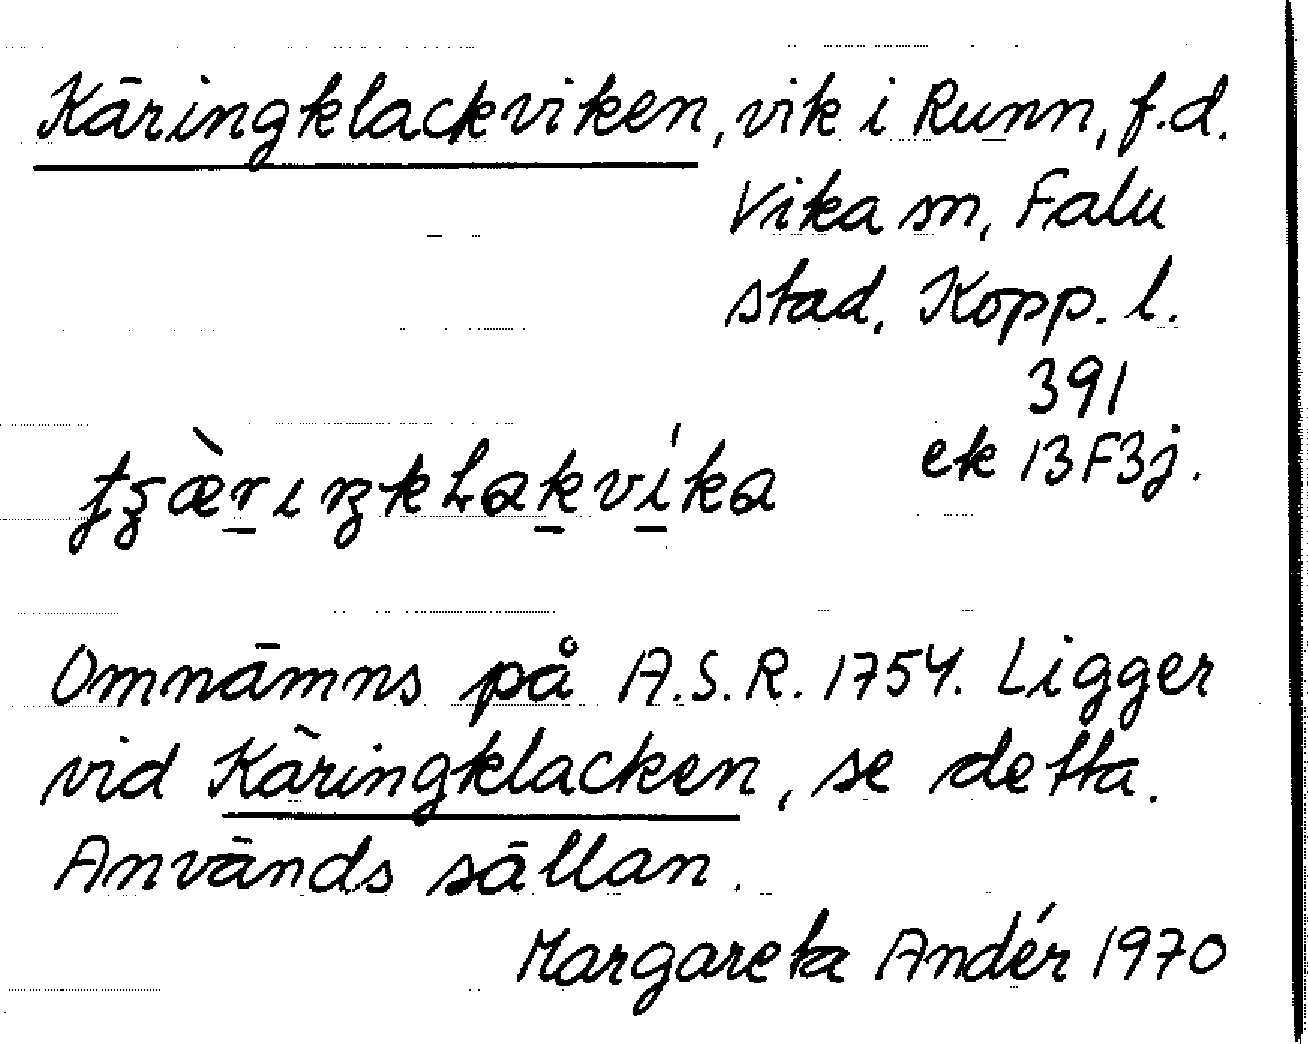 Käringklackviken, vik i Runn, f.d.
Vika sn, Falu
stad, Kopp. l.
391
ek 13F3j.
Omnämns på A.S.R. 1754. Ligger
vid Käringklacken, se detta.
Används sällan.
Margareta Andér 1970